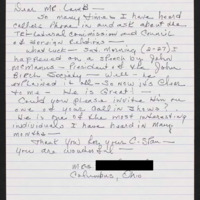 Dear Mr Lamb -
So many times I have heard
callers phone in and ask about the
Tri Lateral Commission and Council
of Foreign Relations -
What luck - Sat. Morning (2-27) I
happened on a speech by John
McManus - President of the John
Birch Society - Well - he
explained it all - So now it's clear
to me - He is Great! -
Could you please invite him on
one of your Call in Shows?
He is one of the most interesting
individuals I have heard in many
months -
Thank you for your C-Span -
you are wonderful -
Mrs.
Columbus, Ohio